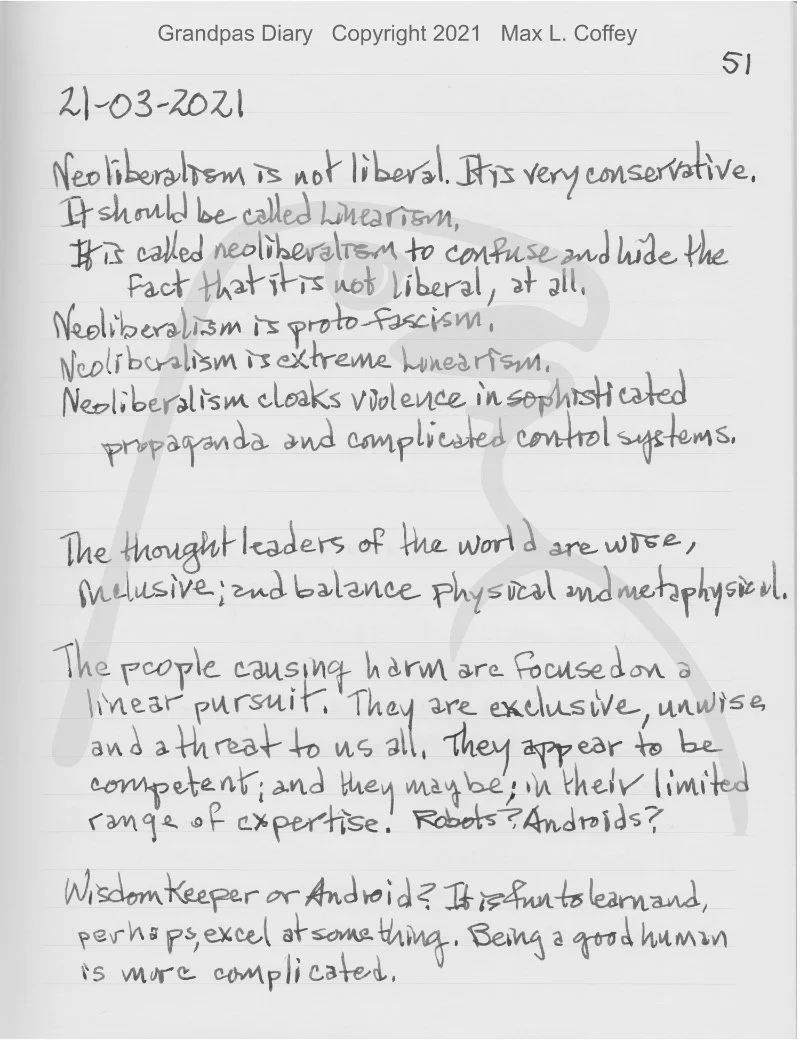 Grandpas Diary Copyright 2021 Max L. Coffey
51
21-03-2021
Neoliberalism is not liberal. It is very conservative.
It should be called Linearism.
It is called neoliberalism to confuse and hide the
fact that it is not liberal, at all.
Neoliberalism is proto-fascism.
Neoliberalism is extreme Linearism.
Neoliberalism cloaks violence in sophisticated
propaganda and complicated control systems.
The thought leaders of the world are wise,
inclusive; and balance physical and metaphysical.
The people causing harm are focused on a
linear pursuit. They are exclusive, unwise
and a threat to us all. They appear to be
competent; and they may be; in their limited
range of expertise. Robots? Androids?
Wisdom Keeper or Android? It is fun to learn and,
perhaps, excel at something. Being a good human
is more complicated.